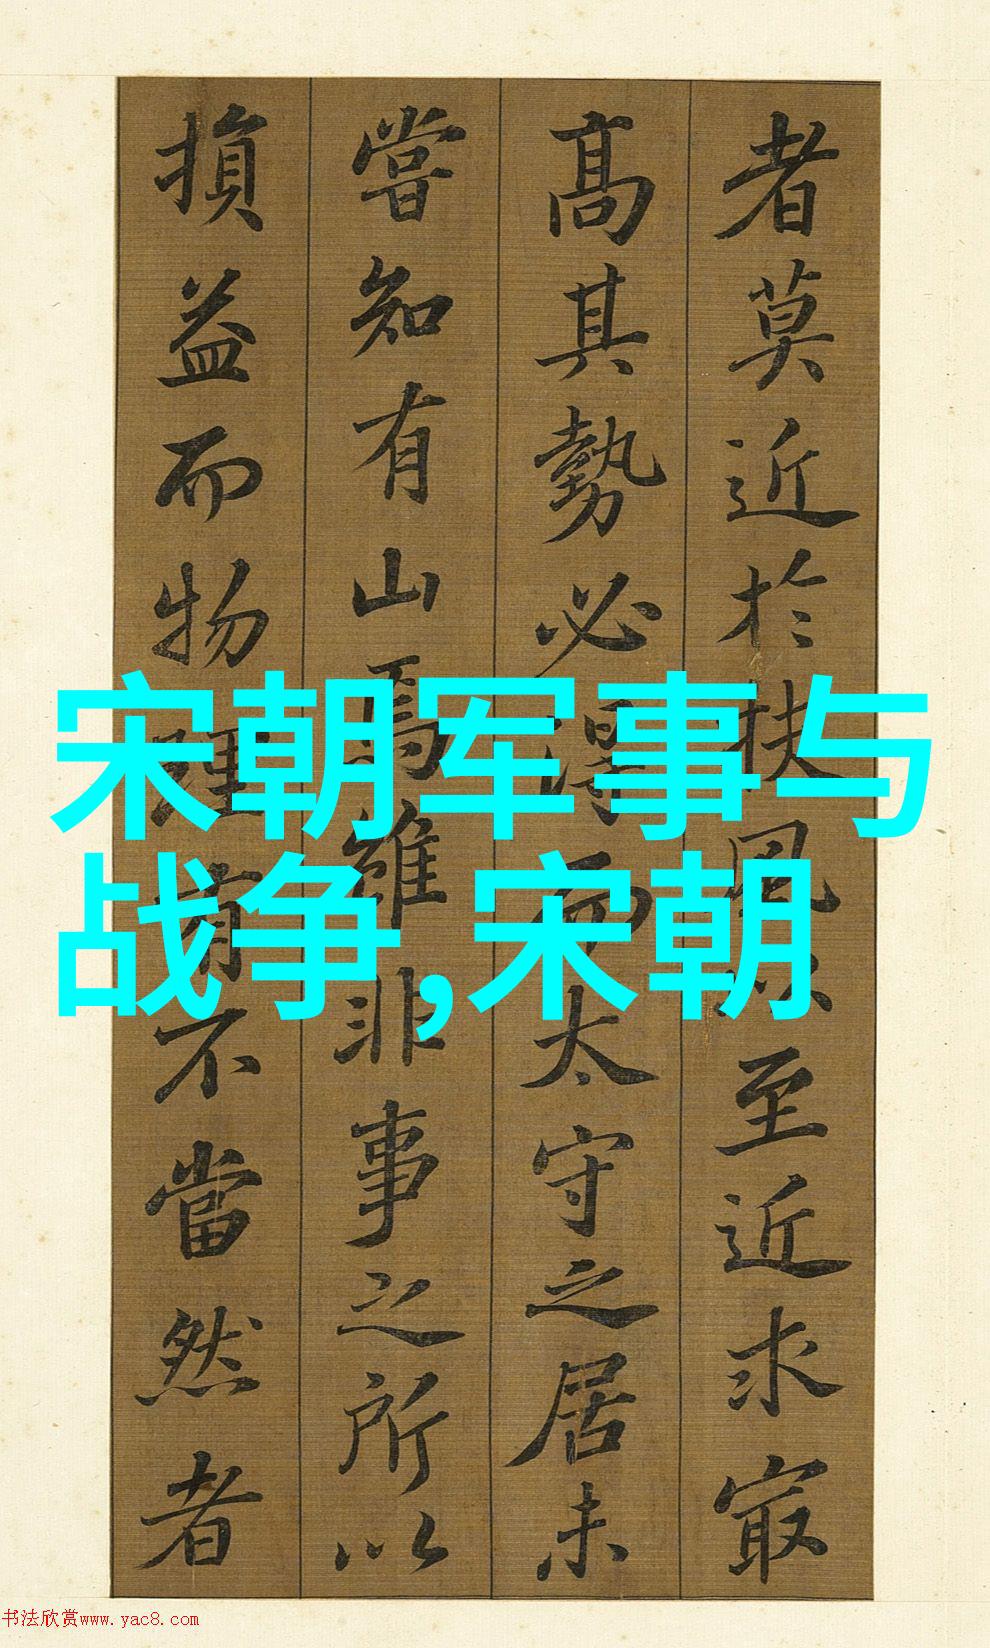 者莫近於扶風以至近求最
高其勢必得而太守之居未
嘗知有山焉雖非事之所以
損益而物理有不當然者
宋朝军事与
战争,宋朝
书法欣赏www.yac8.com